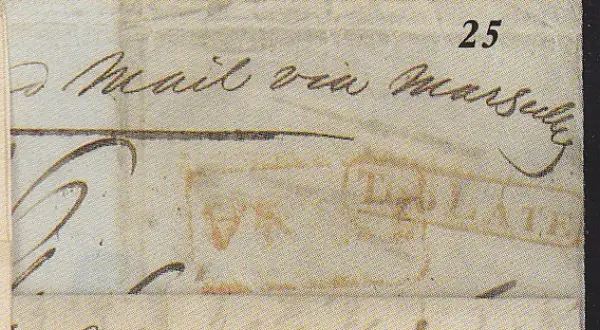 25
Mail via Marseilles
TOO LATE